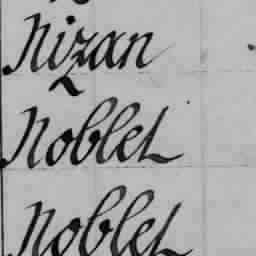 Nizan
Noblet
Noblet